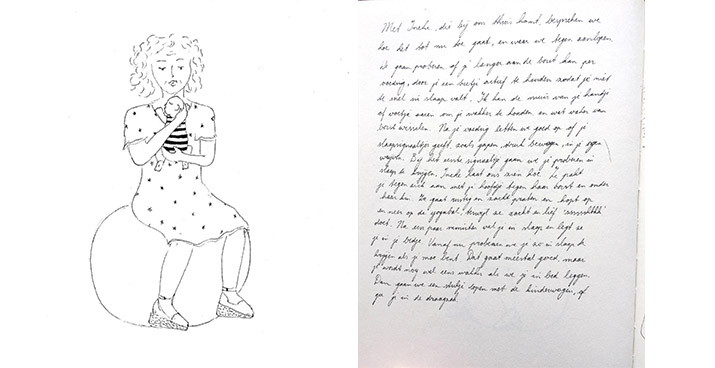 Met Ineke, die bij ons thuis komt, bespreken we
hoe het tot nu toe gaat, en waar we tegen aanlopen.
Ik ga proberen of je langer aan de borst kan per
voeding, door je een beetje actief te houden zodat je niet
de in slaap valt. Ik kan de van je handje
of voetje aaien om je wakker te houden, en wat vaker van
borst wisselen. Na je voeding letten we goed op of je
slaapsignaaltjes geeft, zoals gapen, druk bewegen, in je ogen
wrijven. Bij het eerste signaaltje gaan we je proberen in
slaap te krijgen. Ineke laat ons zien hoe. Ze pakt
je tegen zich aan met je hoofdje tegen haar borst en onder
haar kin. Ze gaat rustig en zacht praten en hopt op
en neer op de yogabal, terwijl ze zacht en lief 'ssssshhhh'
doet. Na een paar minuten val je in slaap en legt ze
je in je bedje. Vanaf nu proberen we je zo in slaap te
krijgen als je moe bent. Dat gaat meestal goed, maar
je wordt nog wel eens wakker als we je in bed leggen.
Dan gaan we een stukje lopen met de kinderwagen, of
ga je in de draagzak.